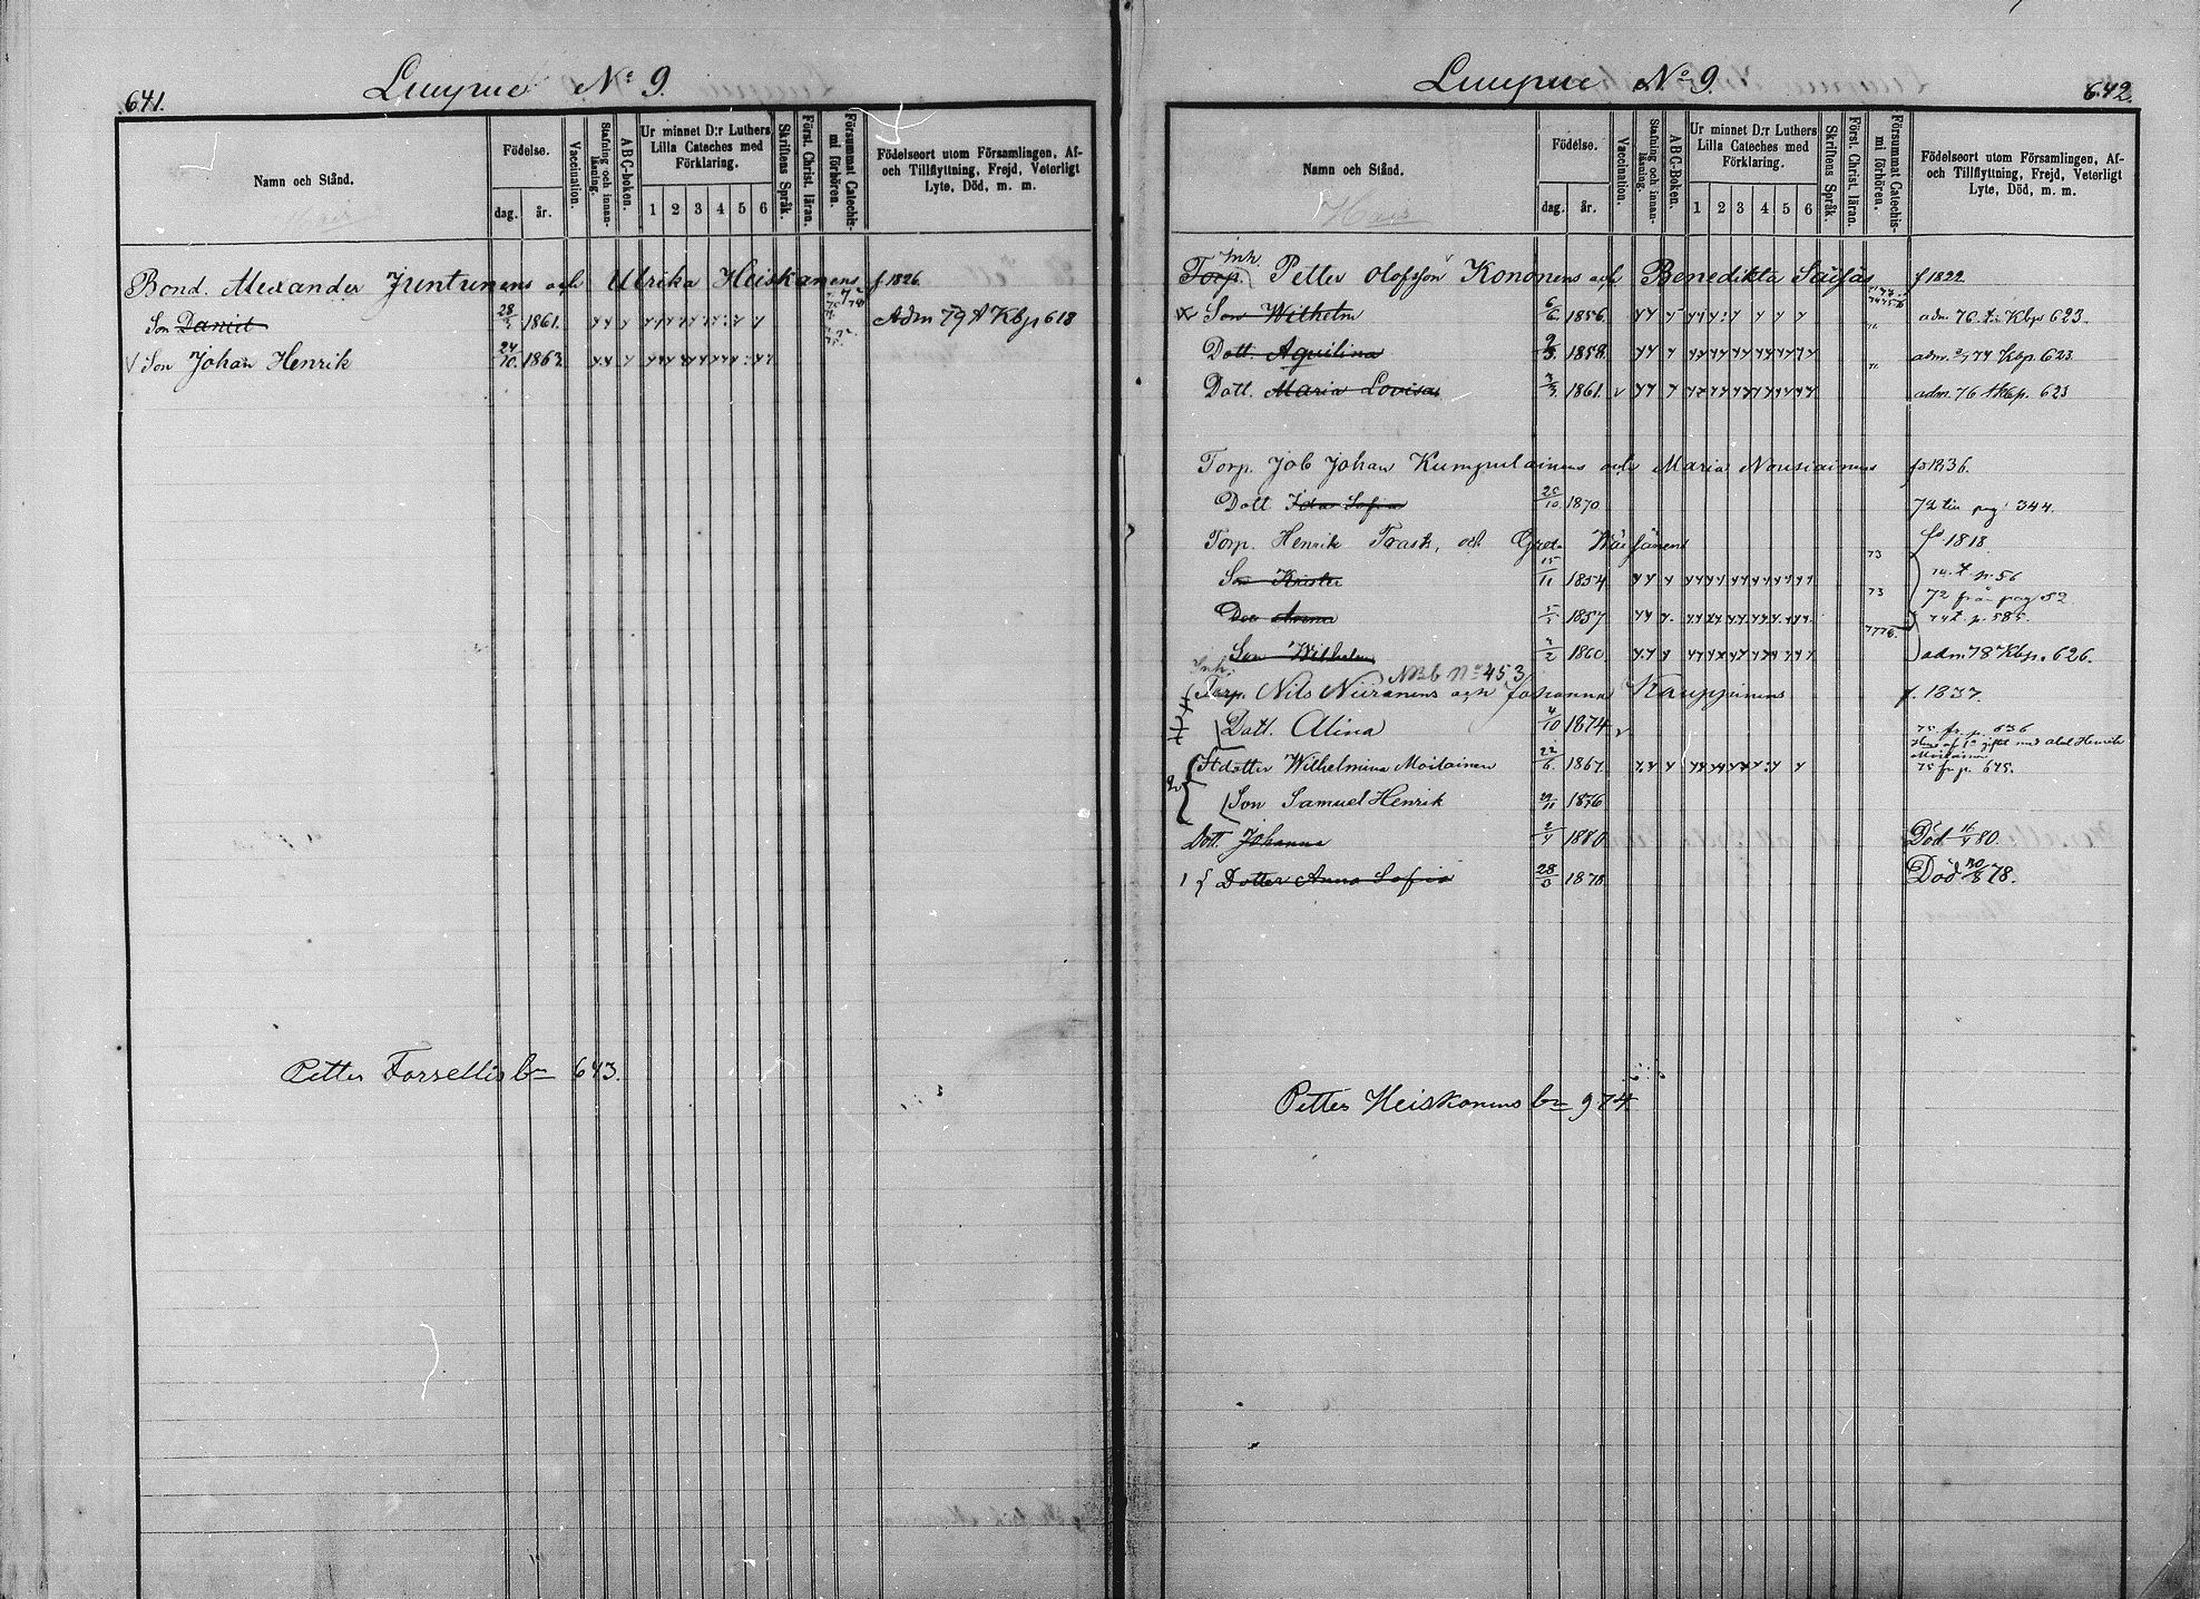 641.
Luupue No 9.
Namn och Stånd.
Födelse.
dag. år.
Vaccination.
Stafning och innanläsning.
ABC-boken.
Ur minnet D:r Luthers Lilla Cateches med Förklaring.
1 2 3 4 5 6
Skriftens Språk.
Först. Christ. läran.
Försummat Catechismi förhören.
Födelseort utom Församlingen, Af- och Tillflyttning, Frejd, Veterligt Lyte, Död, m. m.
Bond. Alexander Juntunens och Ulrika Heiskanens f 1826.
Son Daniel 1861. Adm 79 A Kbp 618
Son Johan Henrik 24/10. 1863.
Petter Forsellis bn 643.
Luupue No 9.
642.
Namn och Stånd.
Födelse.
dag. år.
Vaccination.
Stafning och innanläsning.
ABC-Boken.
Ur minnet D:r Luthers Lilla Cateches med Förklaring.
1 2 3 4 5 6
Skriftens Språk.
Först. Christ. läran.
Försummat Catechismi förhören.
Födelseort utom Församlingen, Af- och Tillflyttning, Frejd, Veterligt Lyte, Död, m. m.
Inh.
Torp. Petter Olofsson Kononens och Benedikta f 1822
Son Wilhelm 6/6. 1856. adm. 76. Kbp 623.
Dott. Aquilina 1858. adm. 77 Kbp. 623
Dott. Maria Lovisa 1861. adm. 76 Kbp. 623
Torp. Job Johan Kumpulainens och Maria Nousiainens 1836.
Dott Ida Sofia 1870 72 till pag 344.
Torp. Henrik Trask, och Greta Wäisänens 1818
Son Krister 15/11 1854 73 p. 56
72 från pag 52
Dott Anna 1857 73 p. 585.
Son Wilhelm 1860. adm. 78 Kbp. 626.
Inh. No 453
Torp. Nils Niiranens och Johanna Kauppinens f. 1837
Dott. Alina 4/10 1874 75 fr. p. 636
gift med Abel Henrik Moilainen
Dotter Wilhelmina Moilainen 22/6. 1867 75 fr p. 645.
Son Samuel Henrik 1876
Dott. Johanna 2/4 1880 Död 16/4 80.
Dotter Anna Sofia 1878 Död 78.
Petter Heiskanens bn 974.